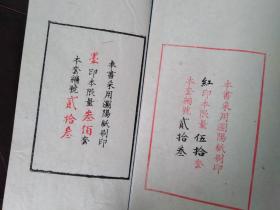 本書采用瀏陽紙刷印
墨印本限量叁佰套
本套編號貳拾叁
本書采用瀏陽紙刷印
紅印本限量伍拾套
本套編號貳拾叁